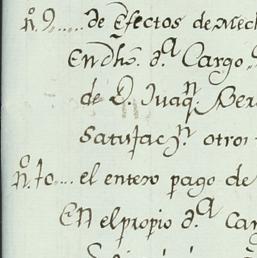 nº. 9..... de Efectos de Mec
En dhº. dª Cargo
de D. Juaqⁿ. Ber
Satisfacⁿ. otros
nº. 10.... el entero pago de
En el propio dª Car